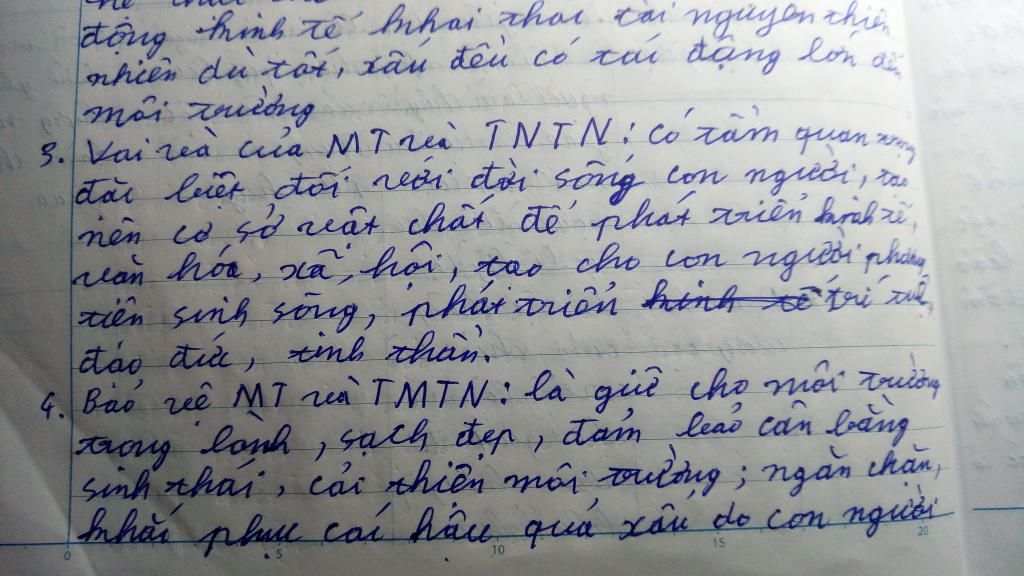 động kinh tế khai thác tài nguyên thiên
nhiên dù tốt, xấu đều có tác động lớn đến
môi trường
3. Vai trò của MT và TNTN: có tầm quan trọng
đặc biệt đối với đời sống con người, tạo
nên cơ sở vật chất để phát triển kinh tế,
văn hóa, xã hội, tạo cho con người phương
tiện sinh sống, phát triển kinh tế trí tuệ,
đạo đức, tinh thần.
4. Bảo vệ MT và TMTN: là giữ cho môi trường
trong lành, sạch đẹp, đảm bảo cân bằng
sinh thái, cải thiện môi trường; ngăn chặn,
khắc phục các hậu quả xấu do con người
0 5 10 15 20